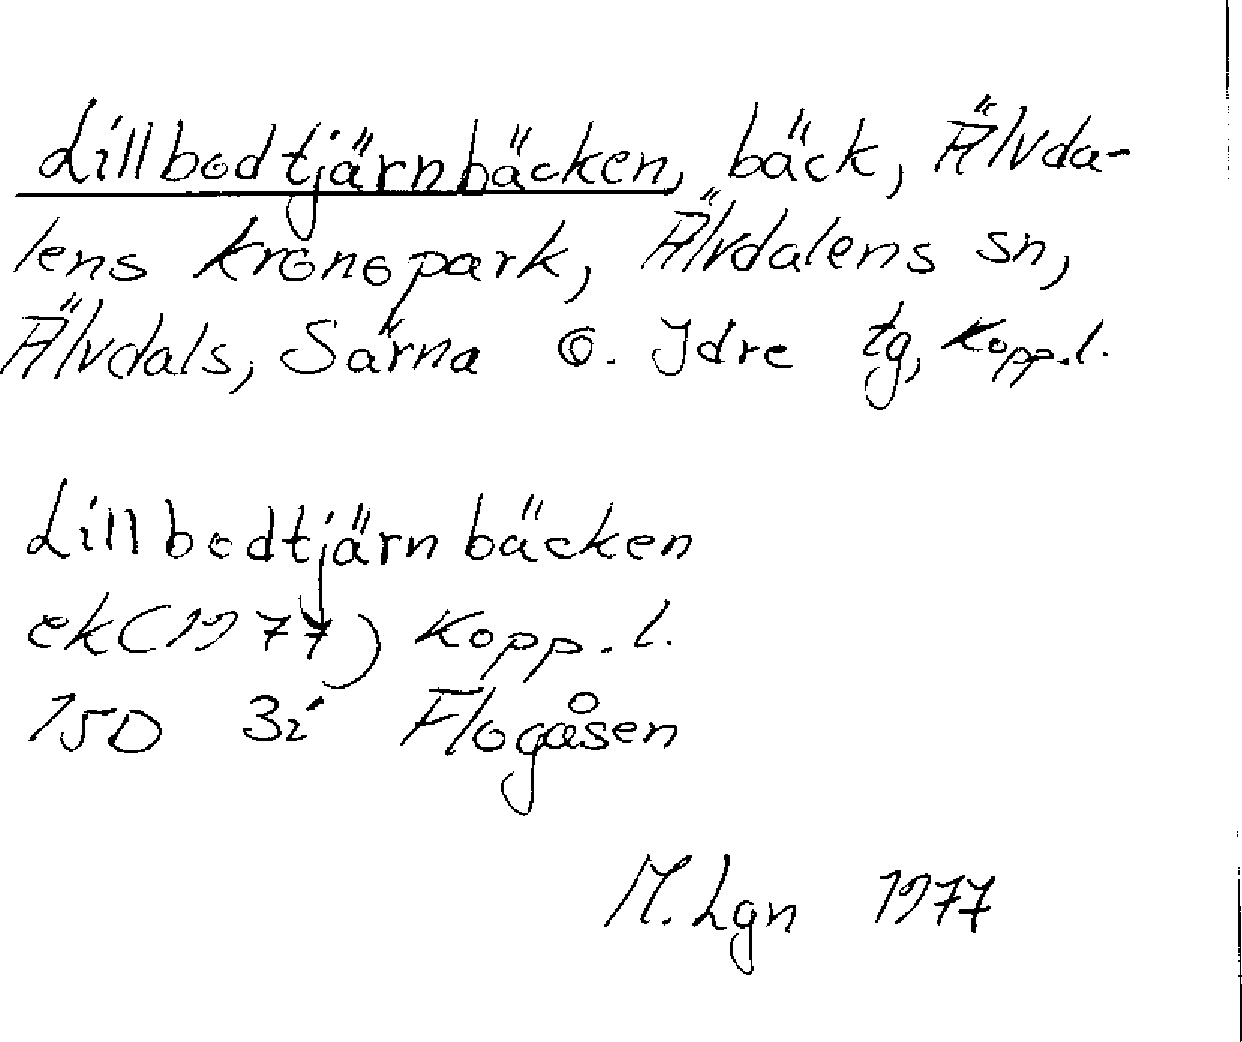 Lillbodtjärnbäcken, bäck, Älvda-
lens kronopark, Älvdalens sn,
Älvdals, Särna o. Idre tg, Kopp.l.
Lillbodtjärnbäcken
ek(1977) Kopp.l.
15D 3i Flogåsen
M. Lgn 1977